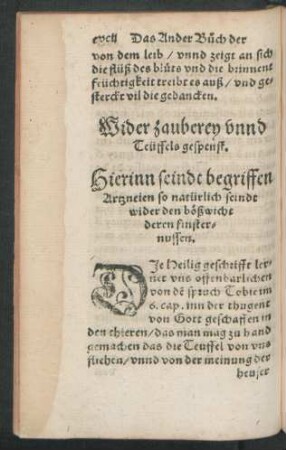 Das Ander Bůch der
von dem leib / vnnd zeigt an sich
die flüß des blůts vnd die brinnent
früchtigkeit treibt es auß / vnd ge-
sterckt vil die gedancken.
Wider zauberey vnnd
Teüffels gespenst.
Hierinn seindt begriffen
Artzneien so natürlich seindt
wider den bößwicht
deren finster-
nussen.
DIe Heilig geschrifft ler-
net vns offenbarlichen
von dē spruch Tobie im
6. cap. inn der thugent
von Gott geschaffen in
den thieren / das man mag zu hand
gemachen das die Teuffel von vns
fliehen / vnnd von der meinung der
heuser